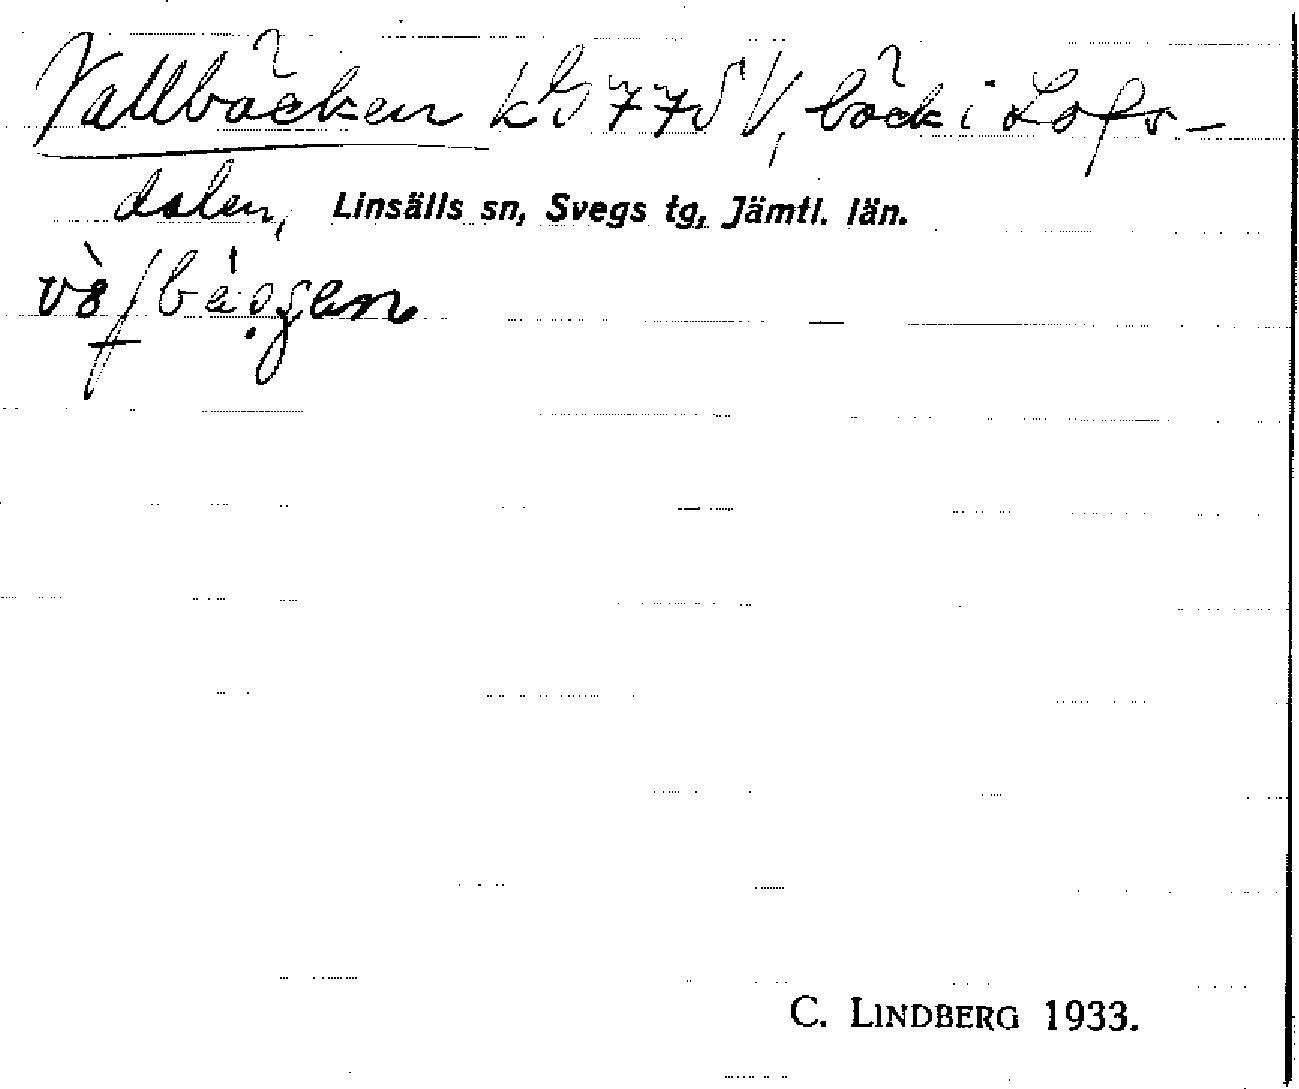 Vallbäcken kG 77 SV, bäck i Lofs-
dalen, Linsälls sn, Svegs tg, Jämtl. län.
C. LINDBERG 1933.